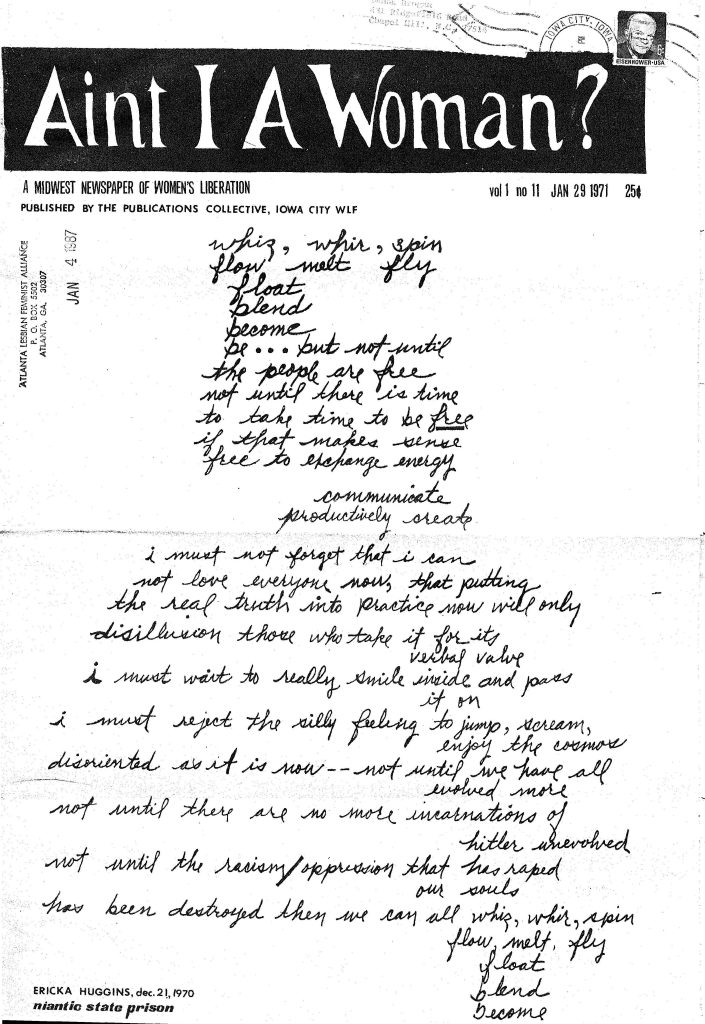 Chapel Hill, N.C.
IOWA CITY, IOWA
PM
EISENHOWER·USA
Aint I A Woman?
A MIDWEST NEWSPAPER OF WOMEN'S LIBERATION
vol 1 no 11 JAN 29 1971 25¢
PUBLISHED BY THE PUBLICATIONS COLLECTIVE, IOWA CITY WLF
ATLANTA LESBIAN FEMINIST ALLIANCE
P. O. BOX 5502
ATLANTA, GA. 30307
JAN 4 1987
whiz, whir, spin
flow, melt fly
float
blend
become
be... but not until
the people are free
not until there is time
to take time to be free
if that makes sense
free to exchange energy
communicate
productively create
i must not forget that i can
not love everyone now, that putting
the real truth into practice now will only
disillusion those who take it for its
verbal value
i must wait to really smile inside and pass
it on
i must reject the silly feeling to jump, scream,
enjoy the cosmos
disoriented as it is now -- not until we have all
evolved more
not until there are no more incarnations of
hitler unevolved
not until the racism/oppression that has raped
our souls
has been destroyed then we can all whiz, whir, spin
flow, melt, fly
float
blend
become
ERICKA HUGGINS, dec. 21, 1970
niantic state prison